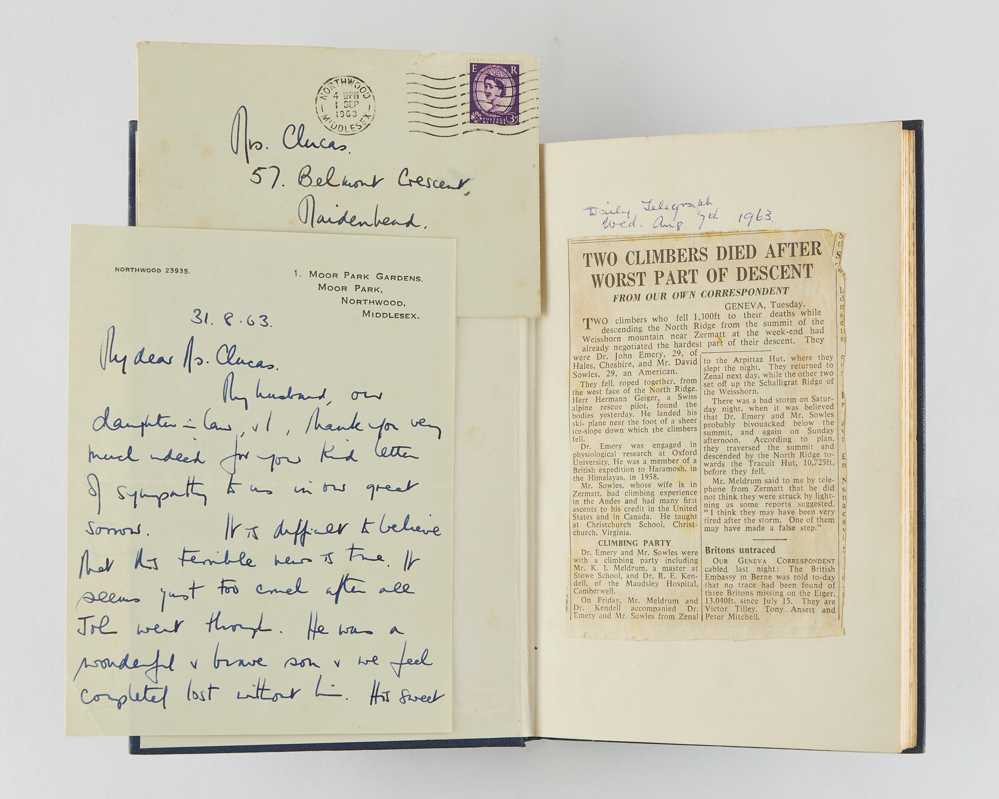 NORTHWOOD
4 - PM
1 SEP
1963
MIDDLESEX
E R
Mrs. Clucas.
57. Belmont Crescent,
Maidenhead.
NORTHWOOD 23935.
1. MOOR PARK GARDENS.
MOOR PARK,
NORTHWOOD,
MIDDLESEX.
31.8.63.
My dear Mrs. Clucas.
My husband, our
daughter-in-law, & I, thank you very
much indeed for your kind letter
of sympathy to us in our great
sorrow. It is difficult to believe
that this terrible news is true. It
seems just too cruel after all
John went through. He was a
wonderful & brave son & we feel
completely lost without him. His sweet
Daily Telegraph
Wed. Aug 7th 1963
TWO CLIMBERS DIED AFTER
WORST PART OF DESCENT
FROM OUR OWN CORRESPONDENT
GENEVA, Tuesday.
TWO climbers who fell 1,300ft to their deaths while
descending the North Ridge from the summit of the
Weisshorn mountain near Zermatt at the week-end had
already negotiated the hardest part of their descent. They
were Dr. John Emery, 29, of
Hales, Cheshire, and Mr. David
Sowles, 29, an American.
They fell, roped together, from
the west face of the North Ridge.
Herr Hermann Geiger, a Swiss
alpine rescue pilot, found the
bodies yesterday. He landed his
ski-plane near the foot of a sheer
ice-slope down which the climbers
fell.
Dr. Emery was engaged in
physiological research at Oxford
University. He was a member of a
British expedition to Haramosh, in
the Himalayas, in 1958.
Mr. Sowles, whose wife is in
Zermatt, had climbing experience
in the Andes and had many first
ascents to his credit in the United
States and in Canada. He taught
at Christchurch School, Christ-
church, Virginia.
CLIMBING PARTY
Dr. Emery and Mr. Sowles were
with a climbing party including
Mr. K. I. Meldrum, a master at
Stowe School, and Dr. R. E. Ken-
dell, of the Maudsley Hospital,
Camberwell.
On Friday, Mr. Meldrum and
Dr. Kendell accompanied Dr.
Emery and Mr. Sowles from Zenal
to the Arpittaz Hut, where they
slept the night. They returned to
Zenal next day, while the other two
set off up the Schalligrat Ridge of
the Weisshorn.
There was a bad storm on Satur-
day night, when it was believed
that Dr. Emery and Mr. Sowles
probably bivouacked below the
summit, and again on Sunday
afternoon. According to plan,
they traversed the summit and
descended by the North Ridge to-
wards the Tracuit Hut, 10,725ft,
before they fell.
Mr. Meldrum said to me by tele-
phone from Zermatt that he did
not think they were struck by light-
ning as some reports suggested.
"I think they may have been very
tired after the storm. One of them
may have made a false step."
Britons untraced
OUR GENEVA CORRESPONDENT
cabled last night: The British
Embassy in Berne was told to-day
that no trace had been found of
three Britons missing on the Eiger,
13,040ft, since July 15. They are
Victor Tilley, Tony Ansett and
Peter Mitchell.